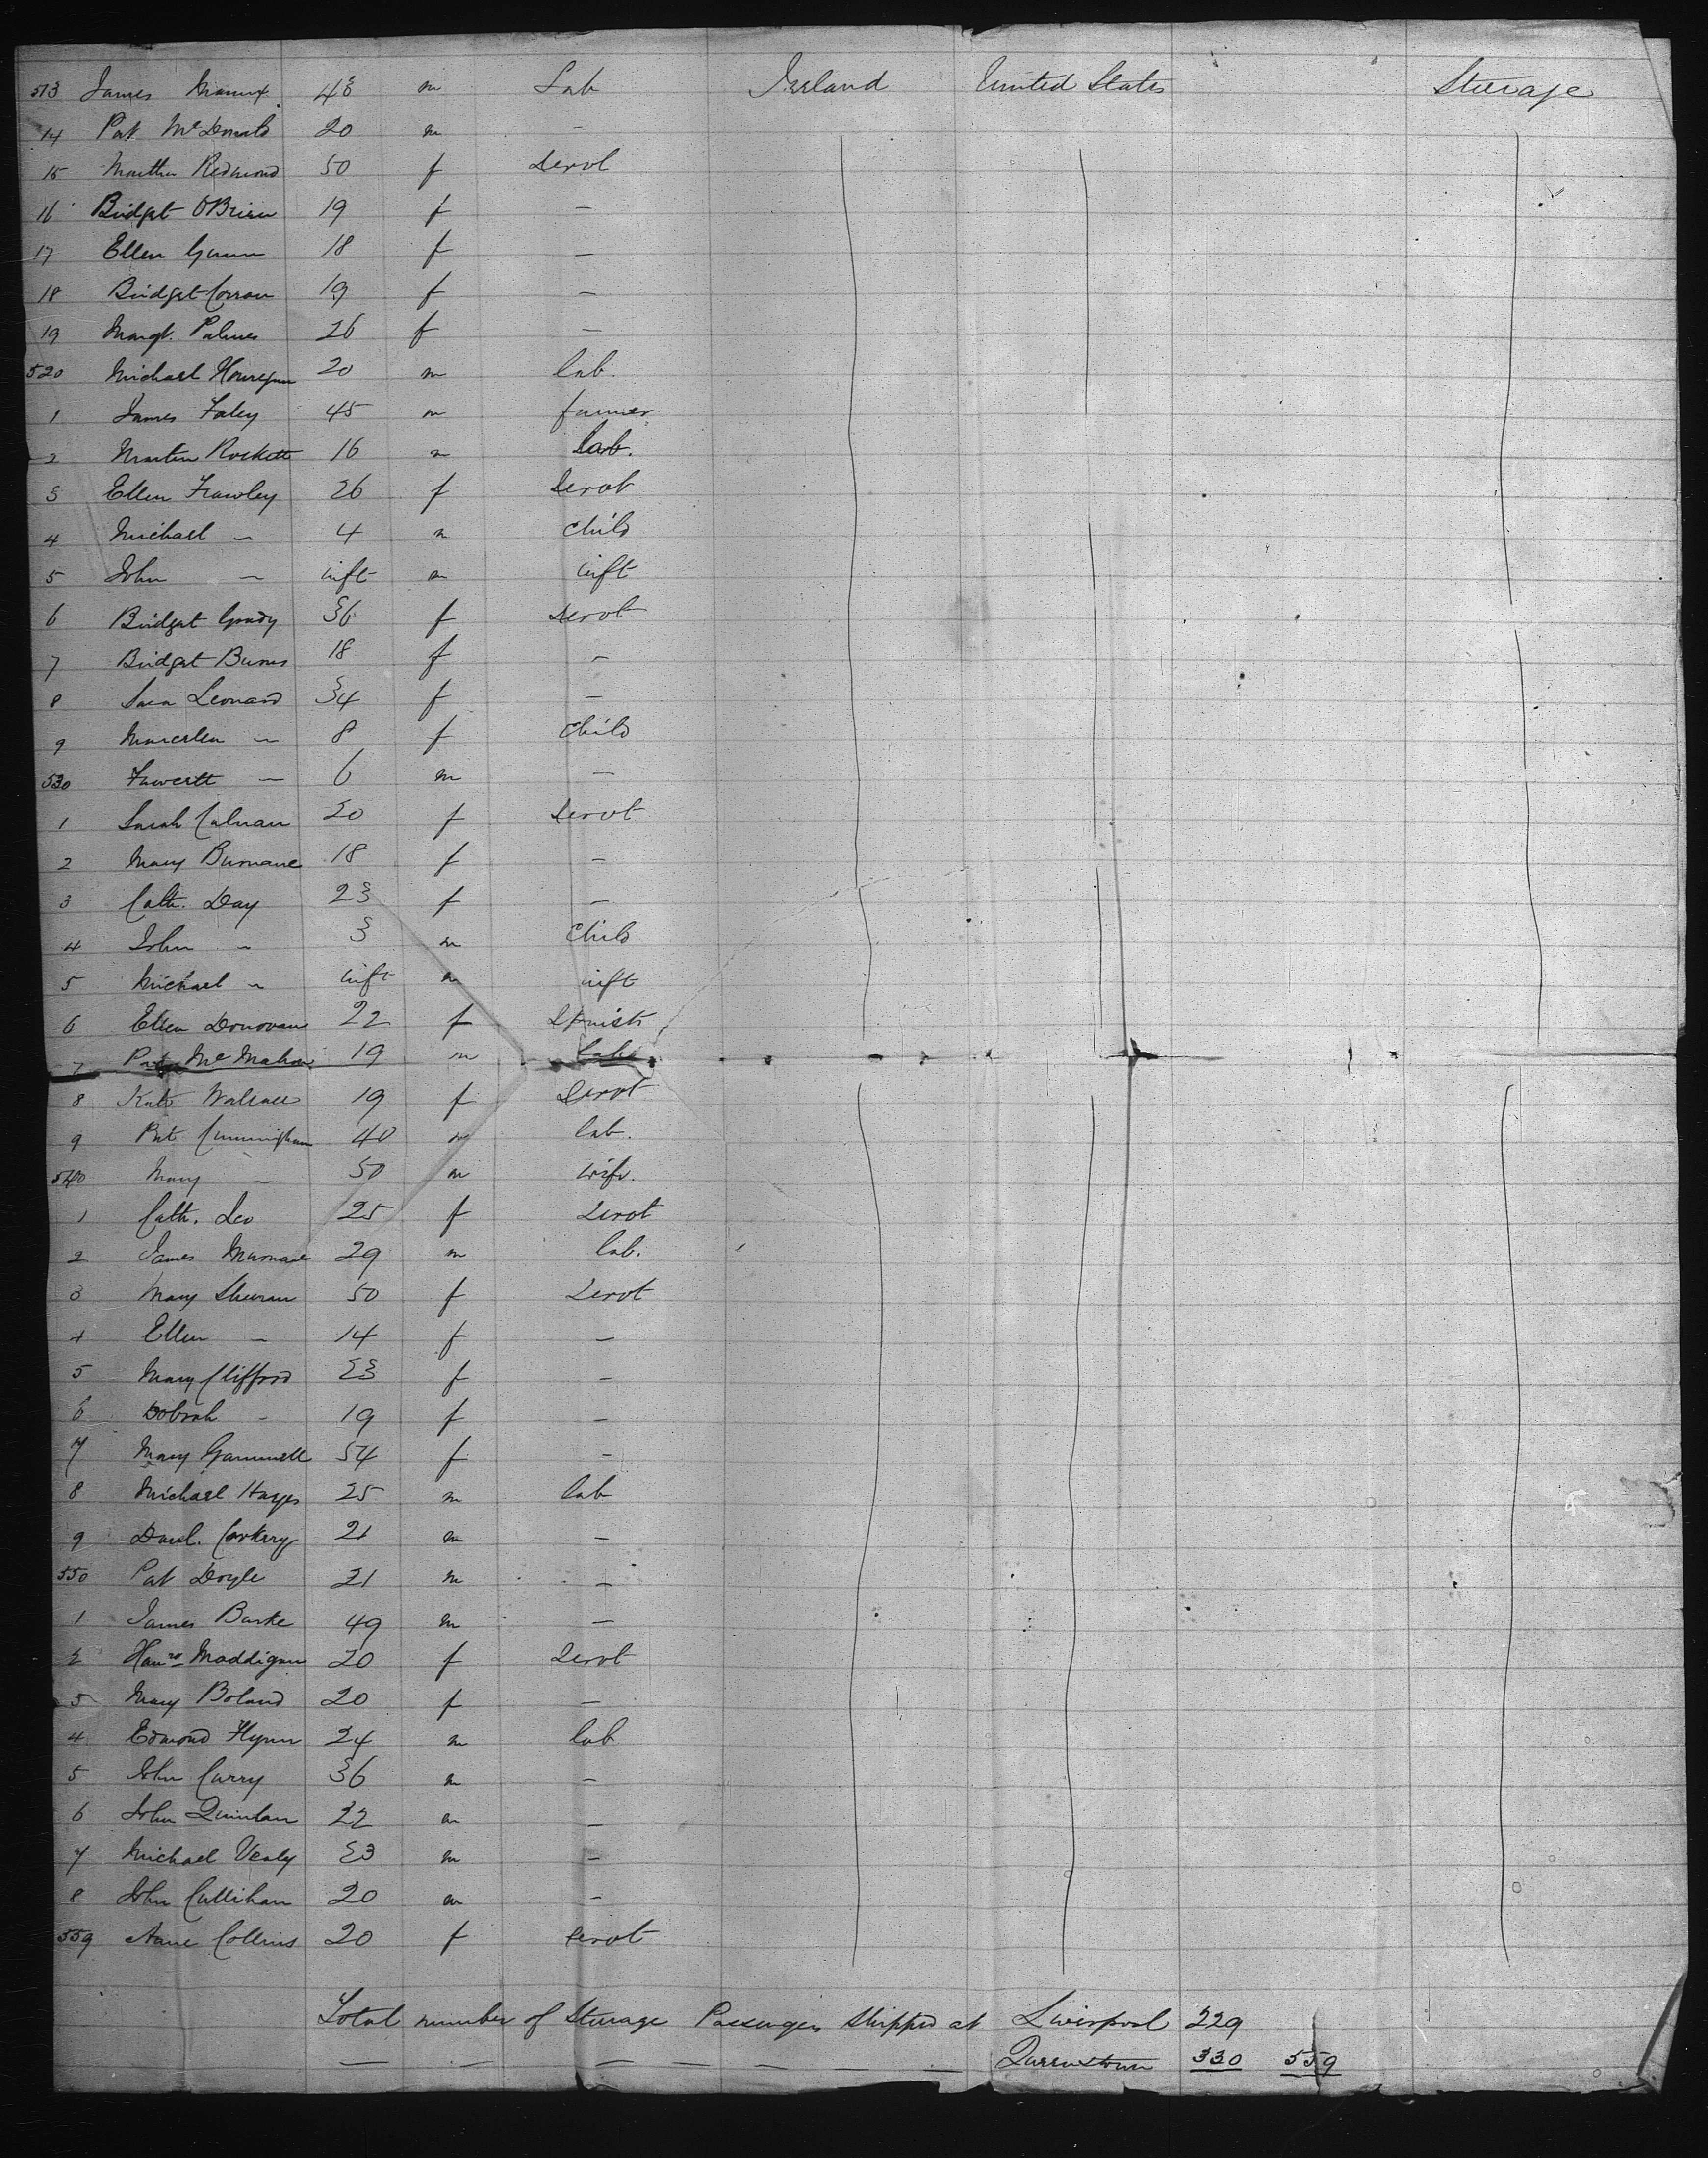 513 James 43 m Lab Ireland United States Steerage
14 Pat McDonald 20 m –
15 Redmond 50 f Servt
16 Bridget OBrien 19 f –
17 Ellen Gunn 18 f –
18 Bridget Corran 19 f –
19 Margt. Palmer 26 f –
520 Michael Hourigan 20 m lab.
1 James Foley 45 m farmer
2 Martin Rockett 16 m lab.
3 Ellen Frawley 26 f Servt
4 Michael – 4 m child
5 John – inft m inft
6 Bridget Grady 36 f Servt
7 Bridget Burns 18 f –
8 Leonard 34 f –
9 – 8 f Child
530 – 6 m –
1 Sarah Calnan 20 f Servt
2 Mary Burnane 18 f –
3 Cath. Day 23 f –
4 John – 3 m Child
5 Michael – inft m inft
6 Ellen Donovan 22 f
7 Pat McMahon 19 m lab
8 Kate Wallace 19 f Servt
9 Pat Cunningham 40 m lab.
540 Mary – 50 m wife.
1 Cath. Leo 25 f Servt
2 James Murnane 29 m lab.
3 Mary 50 f Servt
4 Ellen – 14 f –
5 Mary Clifford 23 f –
6 Dobrah – 19 f –
7 Mary Gammell 54 f –
8 Michael Hayes 25 m lab
9 Danl. Corkery 21 m –
550 Pat Doyle 21 m –
1 James Burke 49 m –
2 Hanra Maddigan 20 f Servt
3 Mary Boland 20 f –
4 Edmond Flynn 24 m lab
5 John Curry 36 m –
6 John Quinlan 22 m –
7 Michael Vealy 23 m –
8 John Cullihan 20 m –
559 Anne Collins 20 f Servt
Total number of Steerage Passengers Shipped at Liverpool 229
– – – – – – – Queenstown 330 559